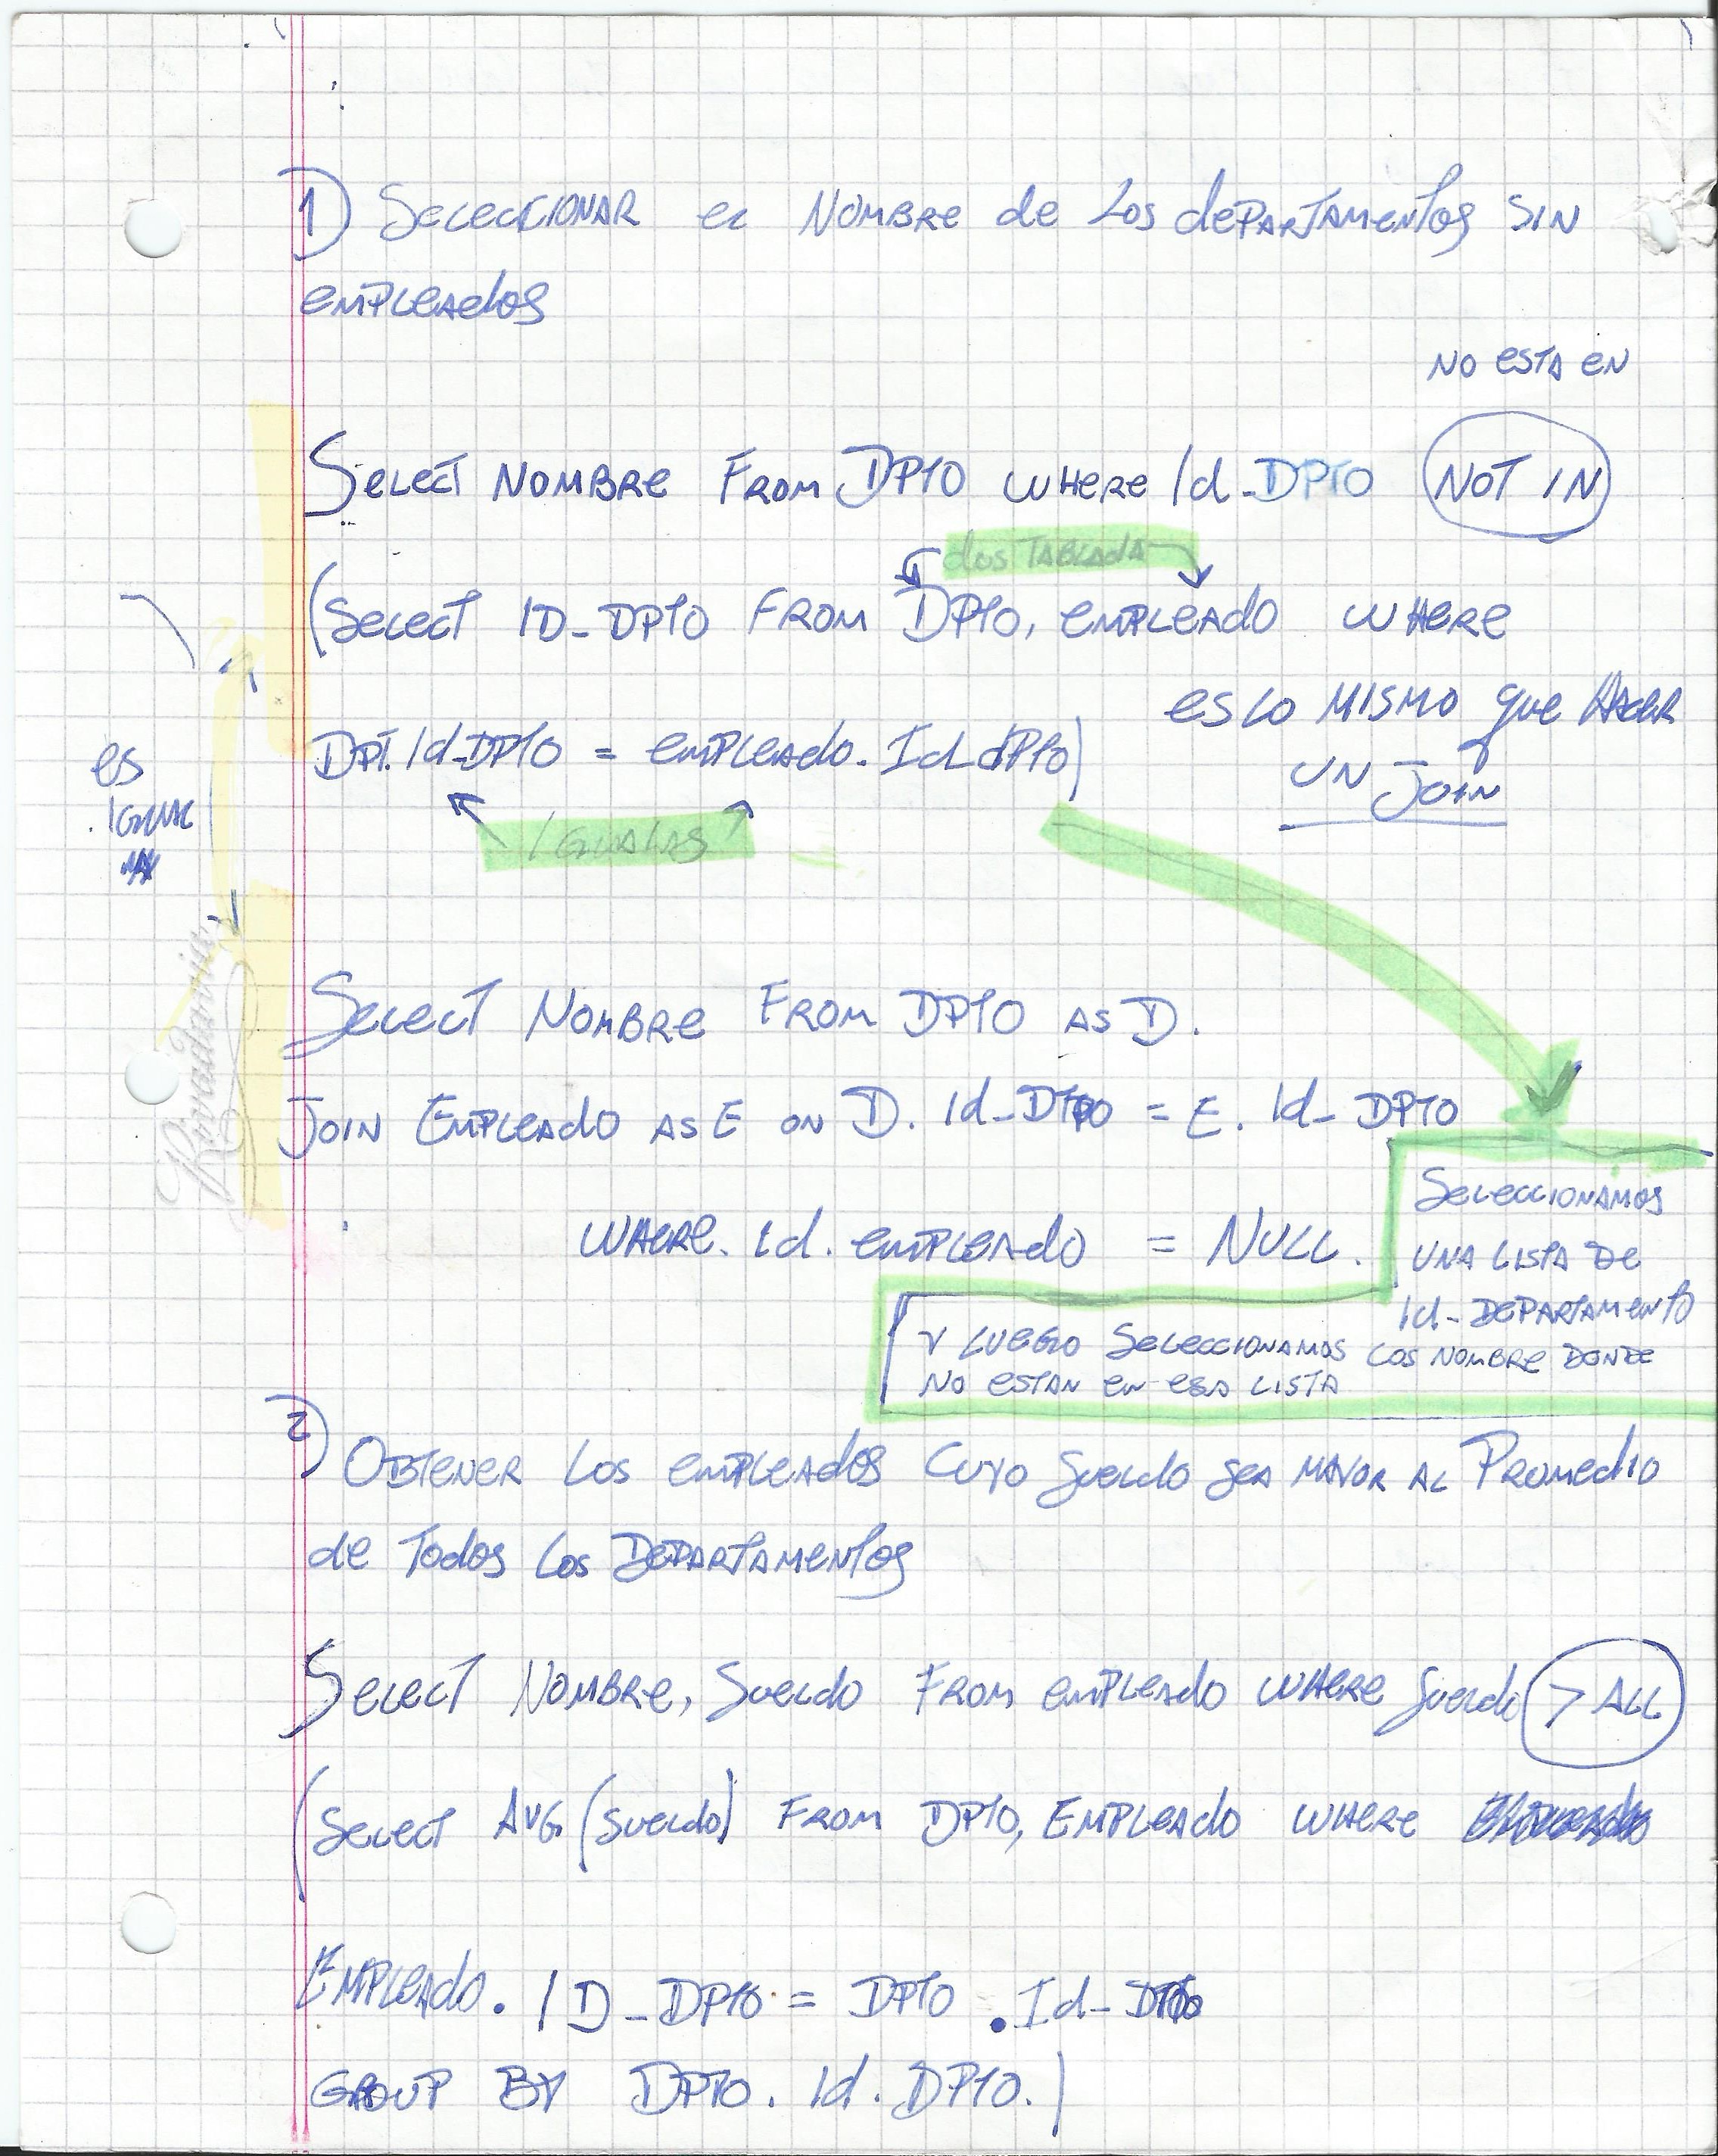 1) Seleccionar el Nombre de Los departamentos sin
empleados
NO ESTA EN
Select Nombre From DPTO where Id_DPTO NOT IN
dos TABLAdA
(Select ID_DPTO FROM DPTO, empleado WHERE
es lo mismo que Hacer
DPT. Id_DPTO = empleado. Id_dPTO)
UN JOIN
es
IGUAL
IGUALAS
Rivadavia
Select Nombre From DPTO AS D.
JOIN Empleado AS E ON D. Id_DTPO = E. Id_DPTO
Seleccionamos
WHERE. Id. empleado = NULL.
UNA LISTA DE
Id_DEPARTAMENTO
Y LUEGO SELECCIONAMOS LOS NOMBRE DONDE
NO ESTAN EN ESA LISTA
2) Obtener Los empleados cuyo sueldo sea mayor al Promedio
de Todos los Departamentos
Select Nombre, Sueldo From empleado WHERE sueldo > ALL
(Select AVG (Sueldo) From DPTO, Empleado WHERE
Empleado. ID_DPTO = DPTO . Id_DPTO
GROUP BY DPTO. Id. DPTO.)